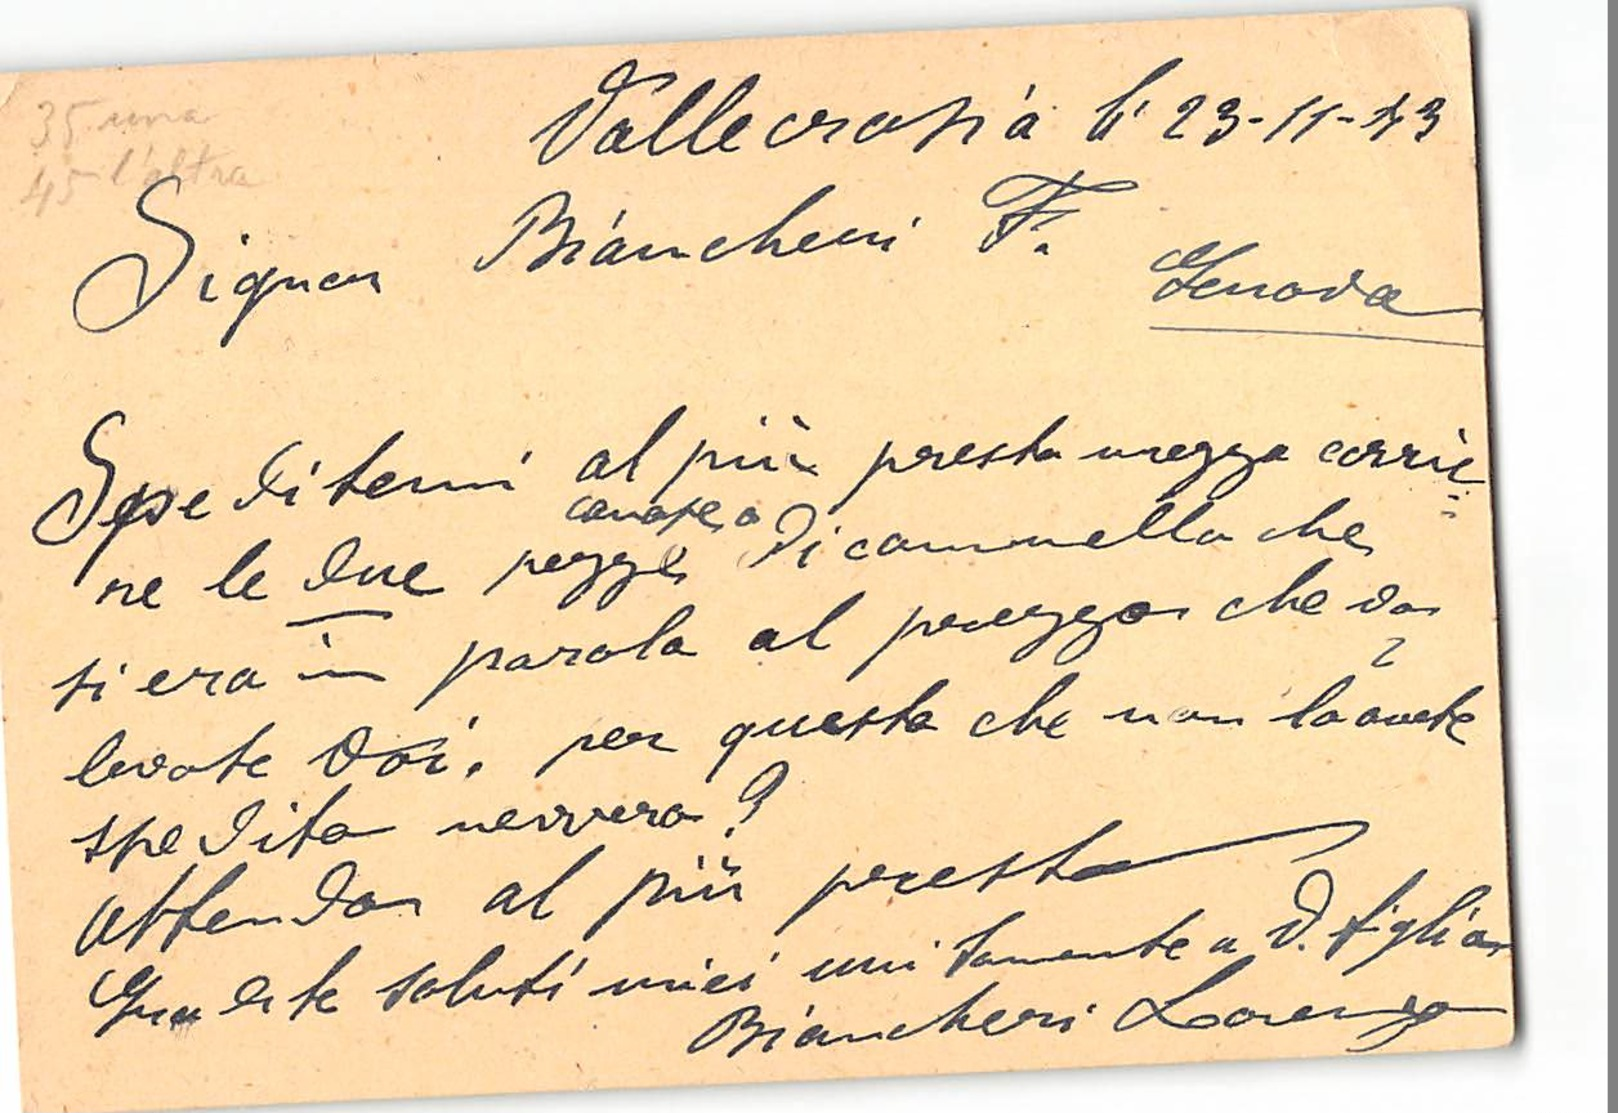 35 una
45 l'altra
Vallecrosia li 23-11-43
Signor Biancheri F.
Genova
Speditemi al più presto mezzo corrie=
re le due pezze di cammello che
si era in parola al prezzo che vo
levate voi. per questo che non lo avete
spedito nevvero?
Attendo al più presto
Gradite saluti miei unitamente a V. figlio
Biancheri Lorenzo